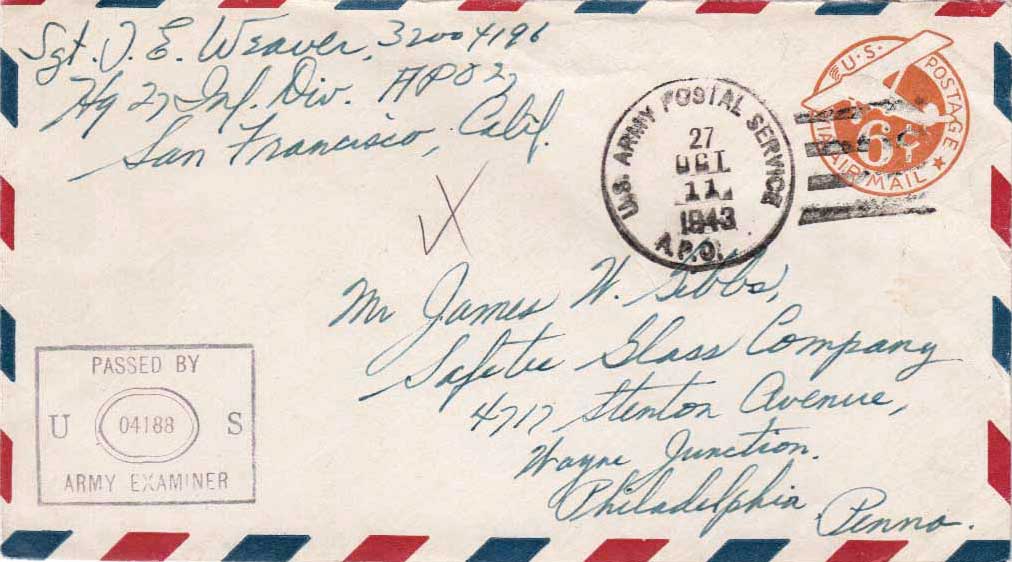 Sgt. J. E. Weaver, 32004196
Hq 27 Inf. Div. APO 27
San Francisco, Calif.
U.S. ARMY POSTAL SERVICE
27
OCT
11
1943
A.P.O.
U.S. POSTAGE
6¢
VIA AIR MAIL
Mr James W. Gibbs,
Safetee Glass Company
4717 Stenton Avenue,
Wayne Junction.
Philadelphia
Penna.
PASSED BY
U 04188 S
ARMY EXAMINER